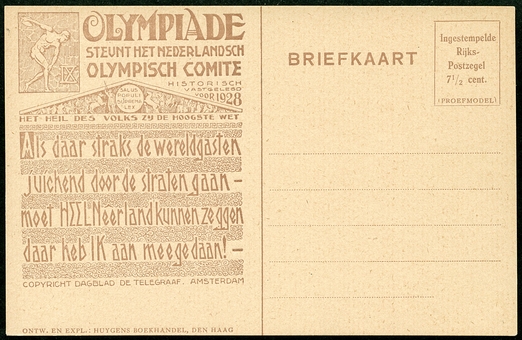 OLYMPIADE
STEUNT HET NEDERLANDSCH
OLYMPISCH COMITE
IX
HISTORISCH
VASTGELEGD
VOOR 1928
SALUS
POPULI
SUPREMA
LEX
HET HEIL DES VOLKS ZY DE HOOGSTE WET
Als daar straks de wereldgasten
juichend door de straten gaan –
moet HEEL Neerland kunnen zeggen
daar heb IK aan meegedaan! –
COPYRIGHT DAGBLAD DE TELEGRAAF, AMSTERDAM
ONTW. EN EXPL.: HUYGENS BOEKHANDEL, DEN HAAG
BRIEFKAART
Ingestempelde
Rijks-
Postzegel
7 1/2 cent.
(PROEFMODEL)